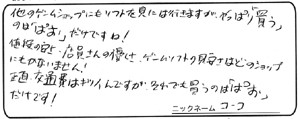 他のゲームショップにもソフトを見には行きますが、やっぱり「買う」
のは「ぱお」だけですね!
値段の安さ・店員さんの優しさ、ゲームソフトの見安さはどのショップ
にもかないません!
交通費はギリィんですが、それでも買うのは「ぱお」
だけです!
ニックネーム コーコ